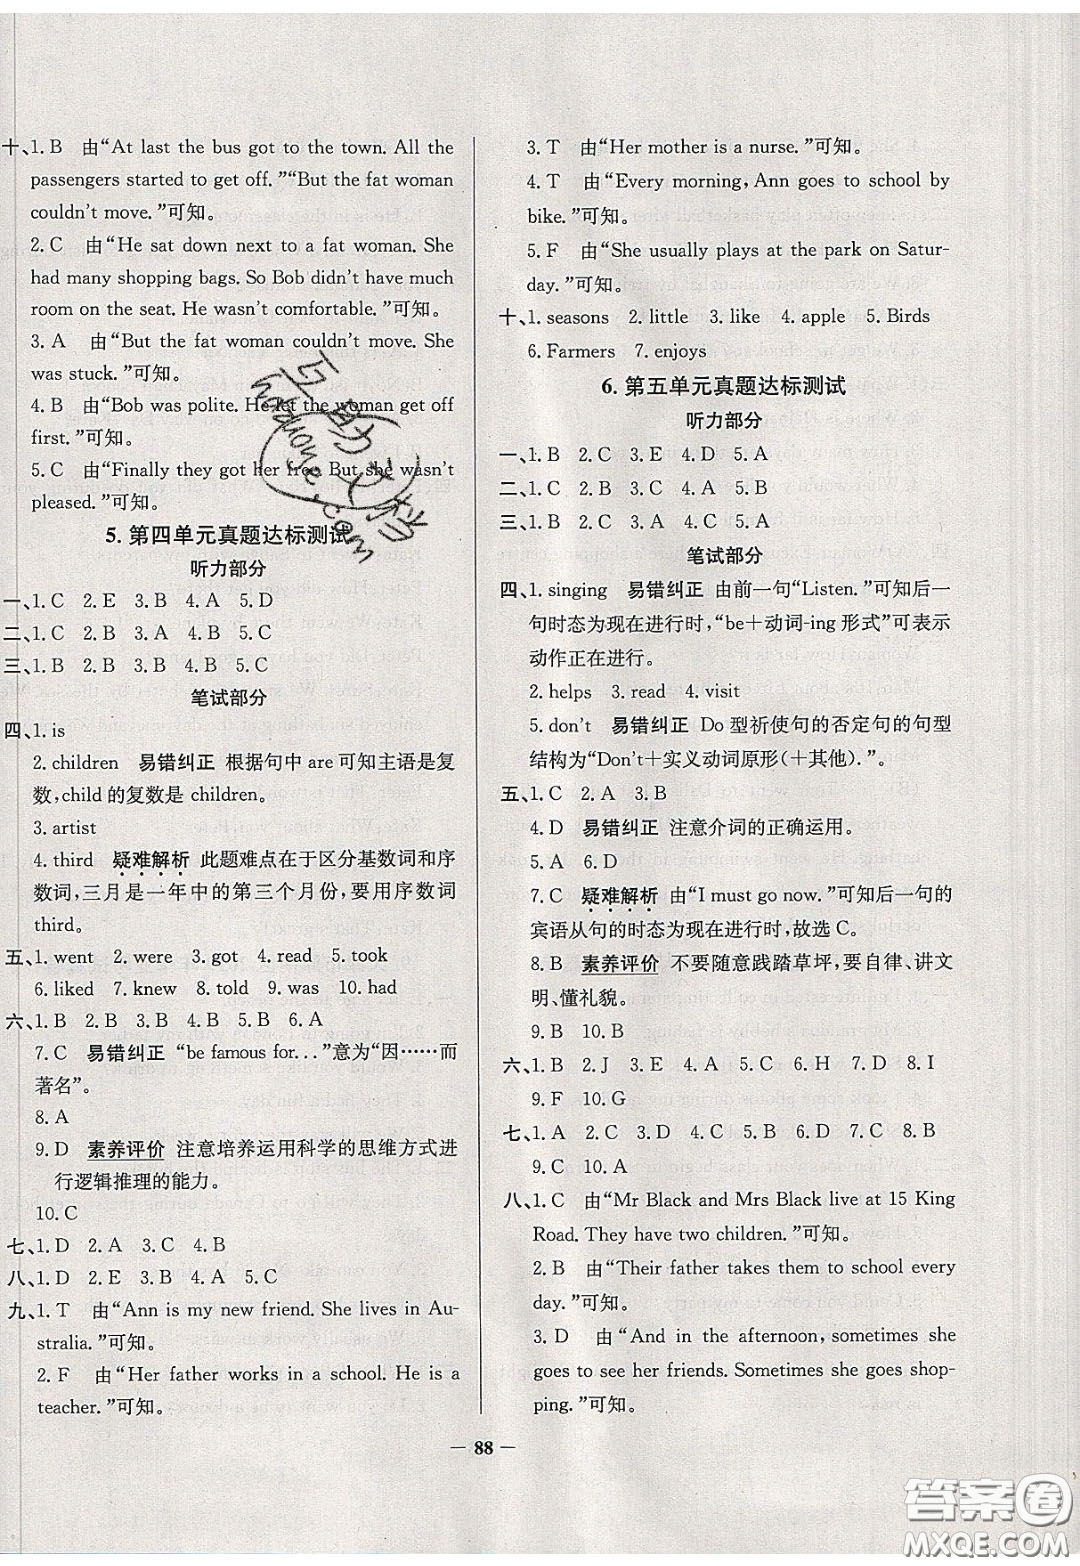 十、1. B 由“At last the bus got to the town. All the
passengers started to get off. ”“But the fat woman
couldn't move. ”可知。
2. C 由“He sat down next to a fat woman. She
had many shopping bags. So Bob didn't have much
room on the seat. He wasn't comfortable. ”可知。
3. A 由“But the fat woman couldn't move. She
was stuck. ”可知。
4. B 由“Bob was polite. He let the woman get off
first. ”可知。
5. C 由“Finally they got her free. But she wasn't
pleased. ”可知。
5. 第四单元真题达标测试
听力部分
一、1. C 2. E 3. B 4. A 5. D
二、1. C 2. B 3. A 4. B 5. C
三、1. B 2. B 3. A 4. B 5. C
笔试部分
四、1. is
2. children 易错纠正 根据句中 are 可知主语是复
数,child 的复数是 children。
3. artist
4. third 疑难解析 此题难点在于区分基数词和序
数词,三月是一年中的第三个月份,要用序数词
third。
五、1. went 2. were 3. got 4. read 5. took
6. liked 7. knew 8. told 9. was 10. had
六、1. B 2. B 3. A 4. B 5. B 6. A
7. C 易错纠正 “be famous for. . . ”意为“因……而
著名”。
8. A
9. D 素养评价 注意培养运用科学的思维方式进
行逻辑推理的能力。
10. C
七、1. D 2. A 3. C 4. B
八、1. D 2. B 3. B 4. A 5. C
九、1. T 由“Ann is my new friend. She lives in Au-
stralia. ”可知。
2. F 由“Her father works in a school. He is a
teacher. ”可知。
3. T 由“Her mother is a nurse. ”可知。
4. T 由“Every morning, Ann goes to school by
bike. ”可知。
5. F 由“She usually plays at the park on Satur-
day. ”可知。
十、1. seasons 2. little 3. like 4. apple 5. Birds
6. Farmers 7. enjoys
6. 第五单元真题达标测试
听力部分
一、1. B 2. C 3. E 4. D 5. A
二、1. C 2. B 3. C 4. A 5. B
三、1. B 2. C 3. A 4. C 5. A
笔试部分
四、1. singing 易错纠正 由前一句“Listen. ”可知后一
句时态为现在进行时,“be＋动词-ing 形式”可表示
动作正在进行。
2. helps 3. read 4. visit
5. don't 易错纠正 Do 型祈使句的否定句的句型
结构为“Don't＋实义动词原形(＋其他). ”。
五、1. C 2. A 3. B
4. D 易错纠正 注意介词的正确运用。
5. A 6. D
7. C 疑难解析 由“I must go now. ”可知后一句的
宾语从句的时态为现在进行时,故选 C。
8. B 素养评价 不要随意践踏草坪,要自律、讲文
明、懂礼貌。
9. B 10. B
六、1. B 2. J 3. E 4. A 5. C 6. H 7. D 8. I
9. F 10. G
七、1. A 2. C 3. D 4. C 5. D 6. C 7. C 8. B
9. C 10. A
八、1. C 由“Mr Black and Mrs Black live at 15 King
Road. They have two children. ”可知。
2. B 由“Their father takes them to school every
day. ”可知。
3. D 由“And in the afternoon, sometimes she
goes to see her friends. Sometimes she goes shop-
ping. ”可知。
— 88 —
答案圈
MXQE.COM